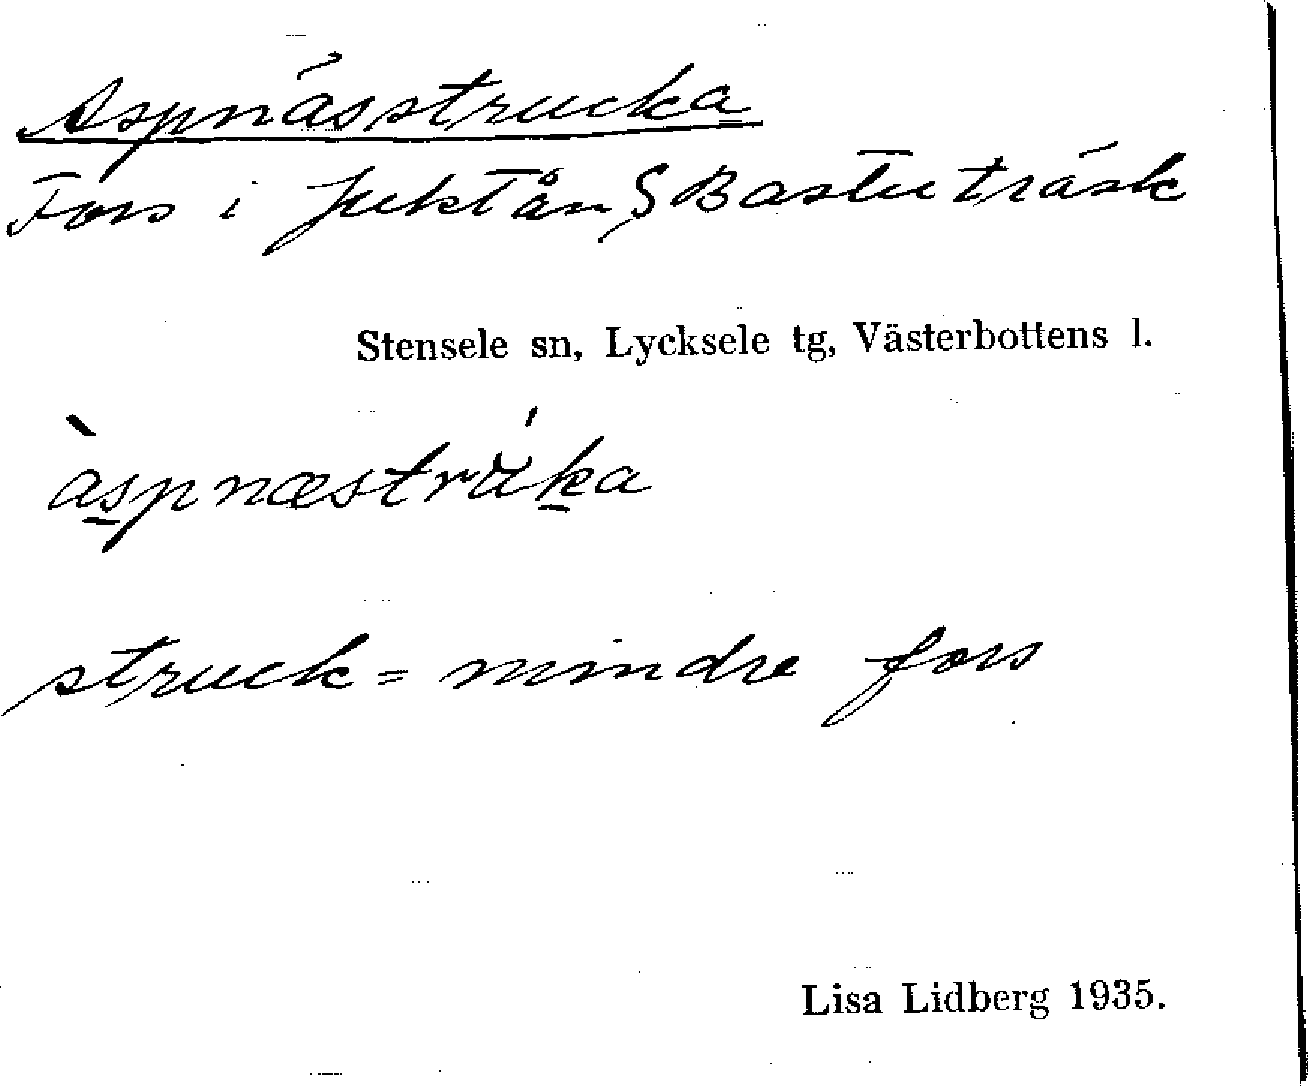 Aspnässtrucka
Fors i Juktån S Bastuträsk
Stensele sn, Lycksele tg, Västerbottens l.
struck = mindre fors
Lisa Lidberg 1935.